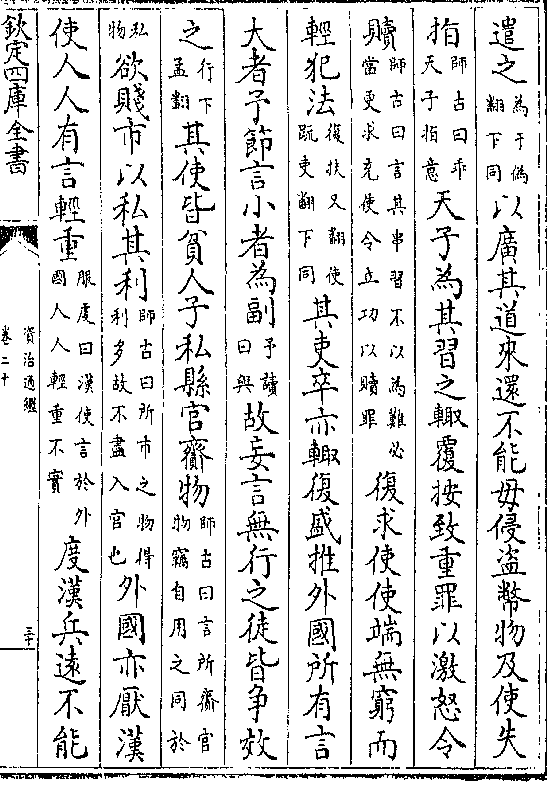 遣之為于偽翻下同以廣其道來還不能毋侵盗幣物及使失
指師古曰乖天子指意天子為其習之輒覆按致重罪以激怒令
贖師古曰言其串習不以為難必當更求充使令立功以贖罪復求使使端無窮而
輕犯法復扶又翻使䟽吏翻下同其吏卒亦輒復盛推外國所有言
大者予節言小者為副予讀曰與故妄言無行之徒皆爭效
之行下孟翻其使皆貧人子私縣官齎物師古曰言所齎官物竊自用之同於
私物欲賤市以私其利師古曰所市之物得利多故不盡入官也外國亦厭漢
使人人有言輕重服虔曰漢使言於外國人人輕重不實度漢兵遠不能
欽定四庫全書
資治通鑑
卷二十
三十